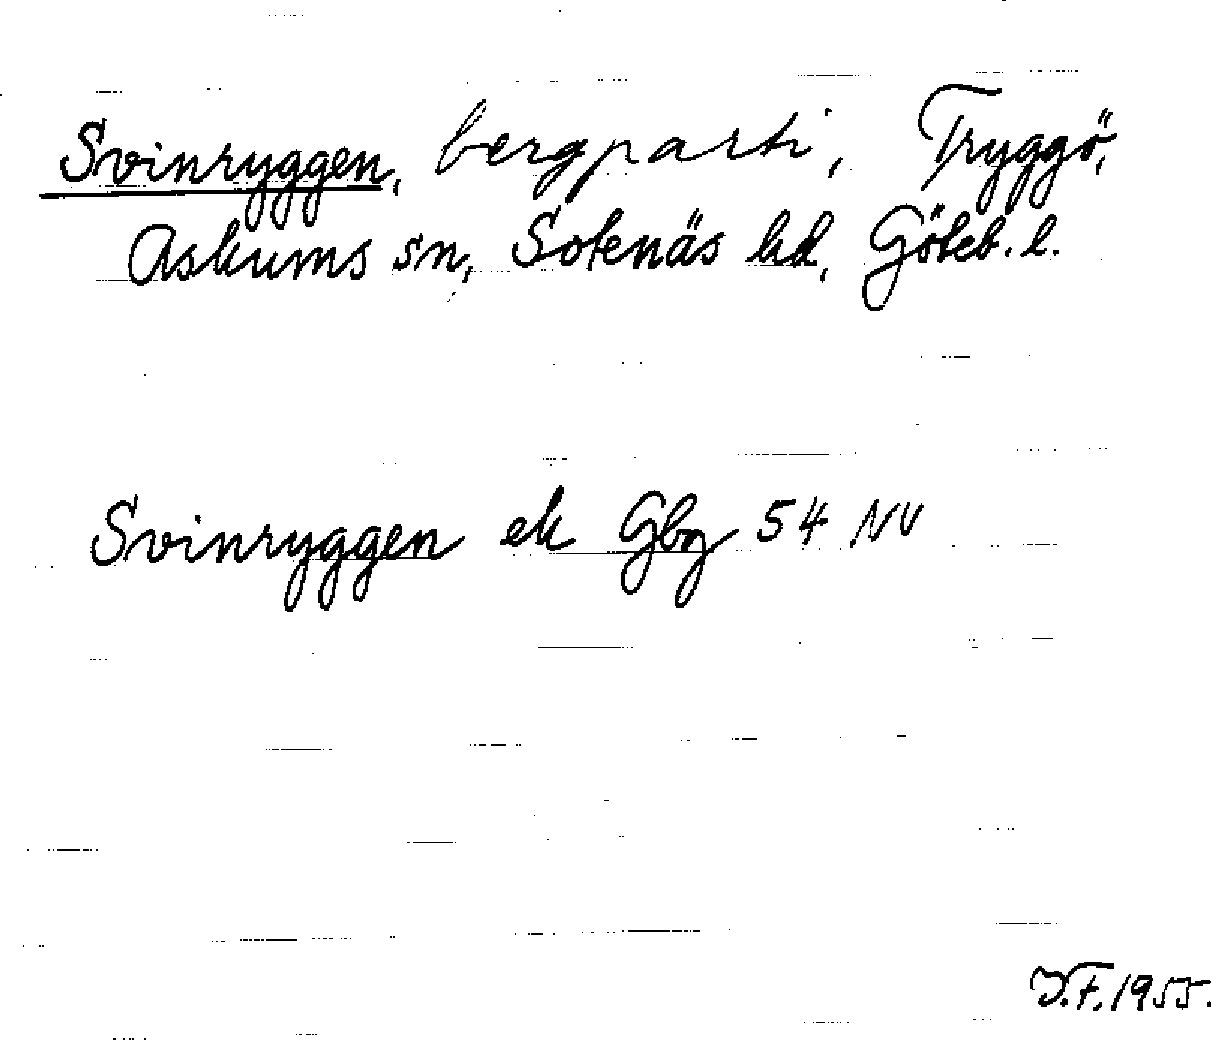 Svinryggen, bergparti, Tryggö,
Askums sn, Sotenäs hd, Göteb. l.
Svinryggen ek Gbg 54 NV
J.F. 1955.